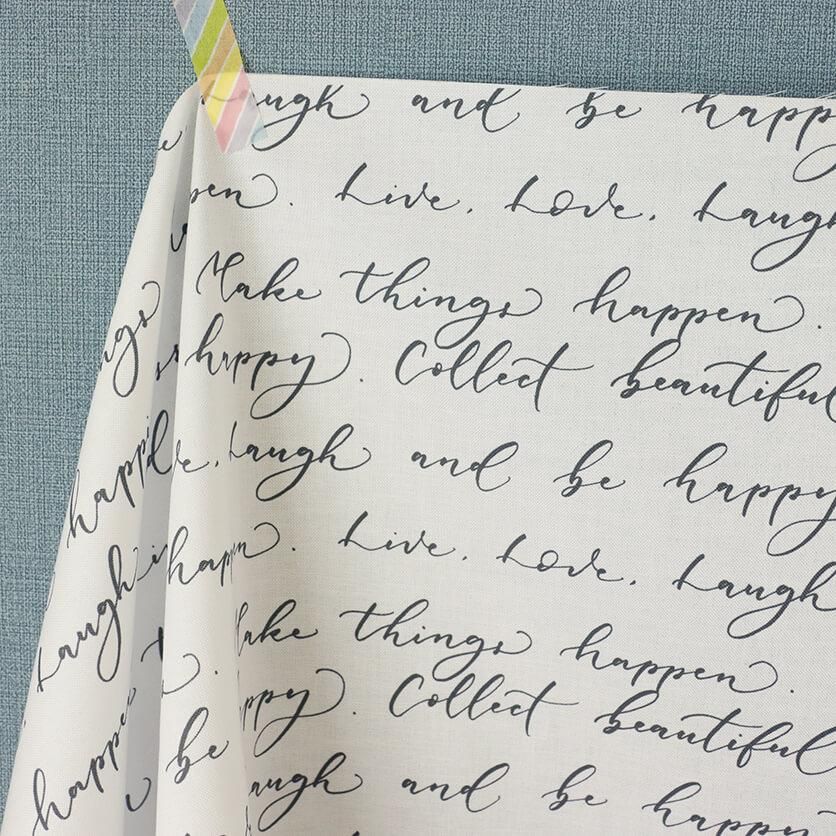 ugh and be happy
pen. Live. Love. Laugh
Make things happen.
happy. Collect beautiful
Laugh and be happy
happen. Live. Love. Laugh
Make things happen.
ppy. Collect beautiful
augh and be happy